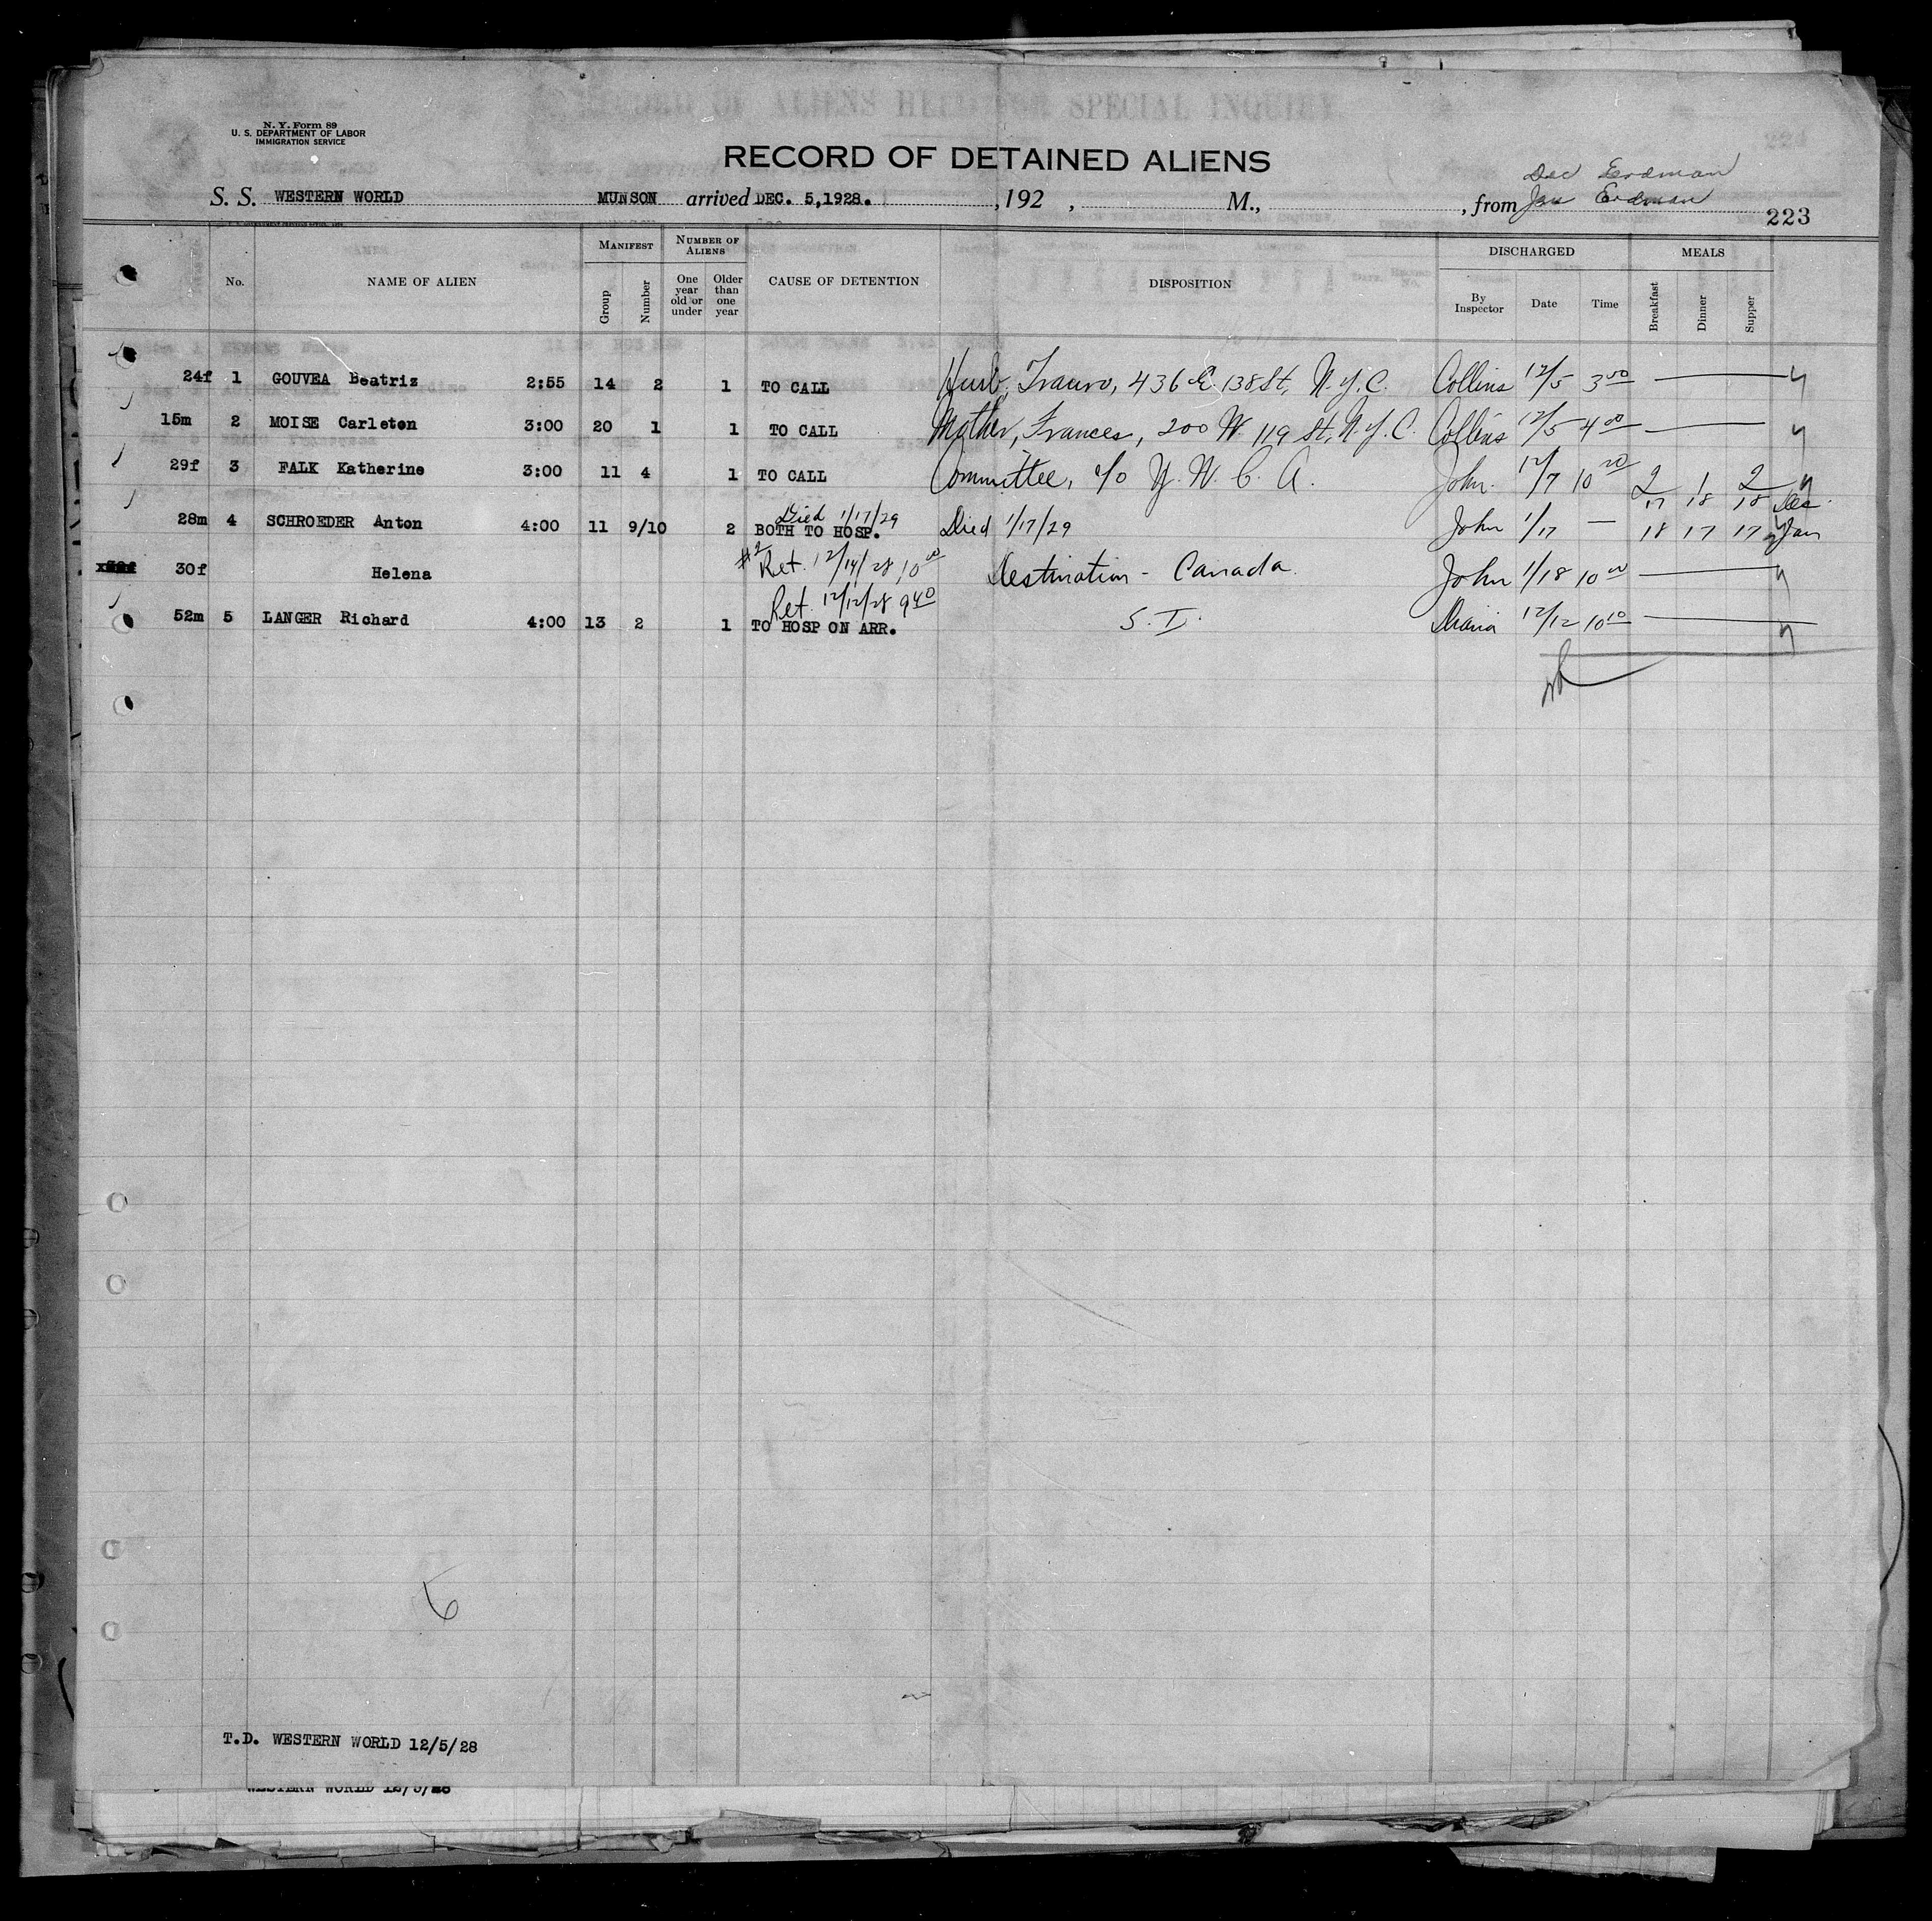 N. Y. Form 89
U. S. DEPARTMENT OF LABOR
IMMIGRATION SERVICE
RECORD OF DETAINED ALIENS
Dec Erdman
S. S. WESTERN WORLD MUNSON arrived DEC. 5,1928. , 192 , M., , from Jan Erdman 223
No. NAME OF ALIEN MANIFEST Group Number NUMBER OF ALIENS One year old or under Older than one year CAUSE OF DETENTION DISPOSITION DISCHARGED By Inspector Date Time MEALS Breakfast Dinner Supper
24f 1 GOUVEA Beatriz 2:55 14 2 1 TO CALL Husb, 436 E. 138 St, N.Y.C. Collins 12/5 3 00
15m 2 MOISE Carleton 3:00 20 1 1 TO CALL Mother, Frances, 200 W. 119 St, N.Y.C. Collins 12/5 4 00
29f 3 FALK Katherine 3:00 11 4 1 TO CALL Committee, c/o Y. W. C. A. John 12/7 10 20 2 1 2
Died 1/17/29 17 18 18 Dec
28m 4 SCHROEDER Anton 4:00 11 9/10 2 BOTH TO HOSP. Died 1/17/29 John 1/17 — 18 17 17 Jan
#2 Ret. 12/14/28 10 00
30f Helena Destination - Canada. John 1/18 10 00
Ret. 12/12/28 9 40
52m 5 LANGER Richard 4:00 13 2 1 TO HOSP ON ARR. S. I. 12/12 10 10
6
T.D. WESTERN WORLD 12/5/28
WESTERN WORLD 12/5/28